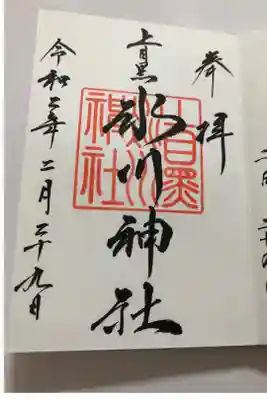 奉拝
上目黒
氷川神社
上目黒氷川神社
令和二年二月二十九日